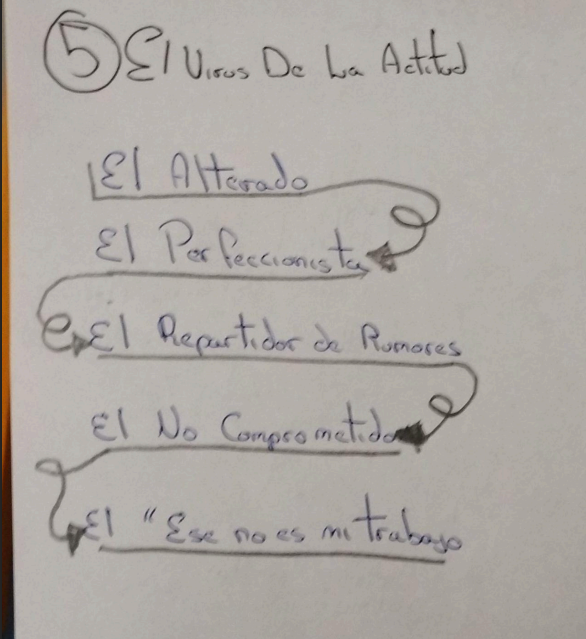 5 El Virus De La Actitud
El Alterado
El Perfeccionista
El Repartidor de Rumores
El No Comprometido
El "Ese no es mi trabajo